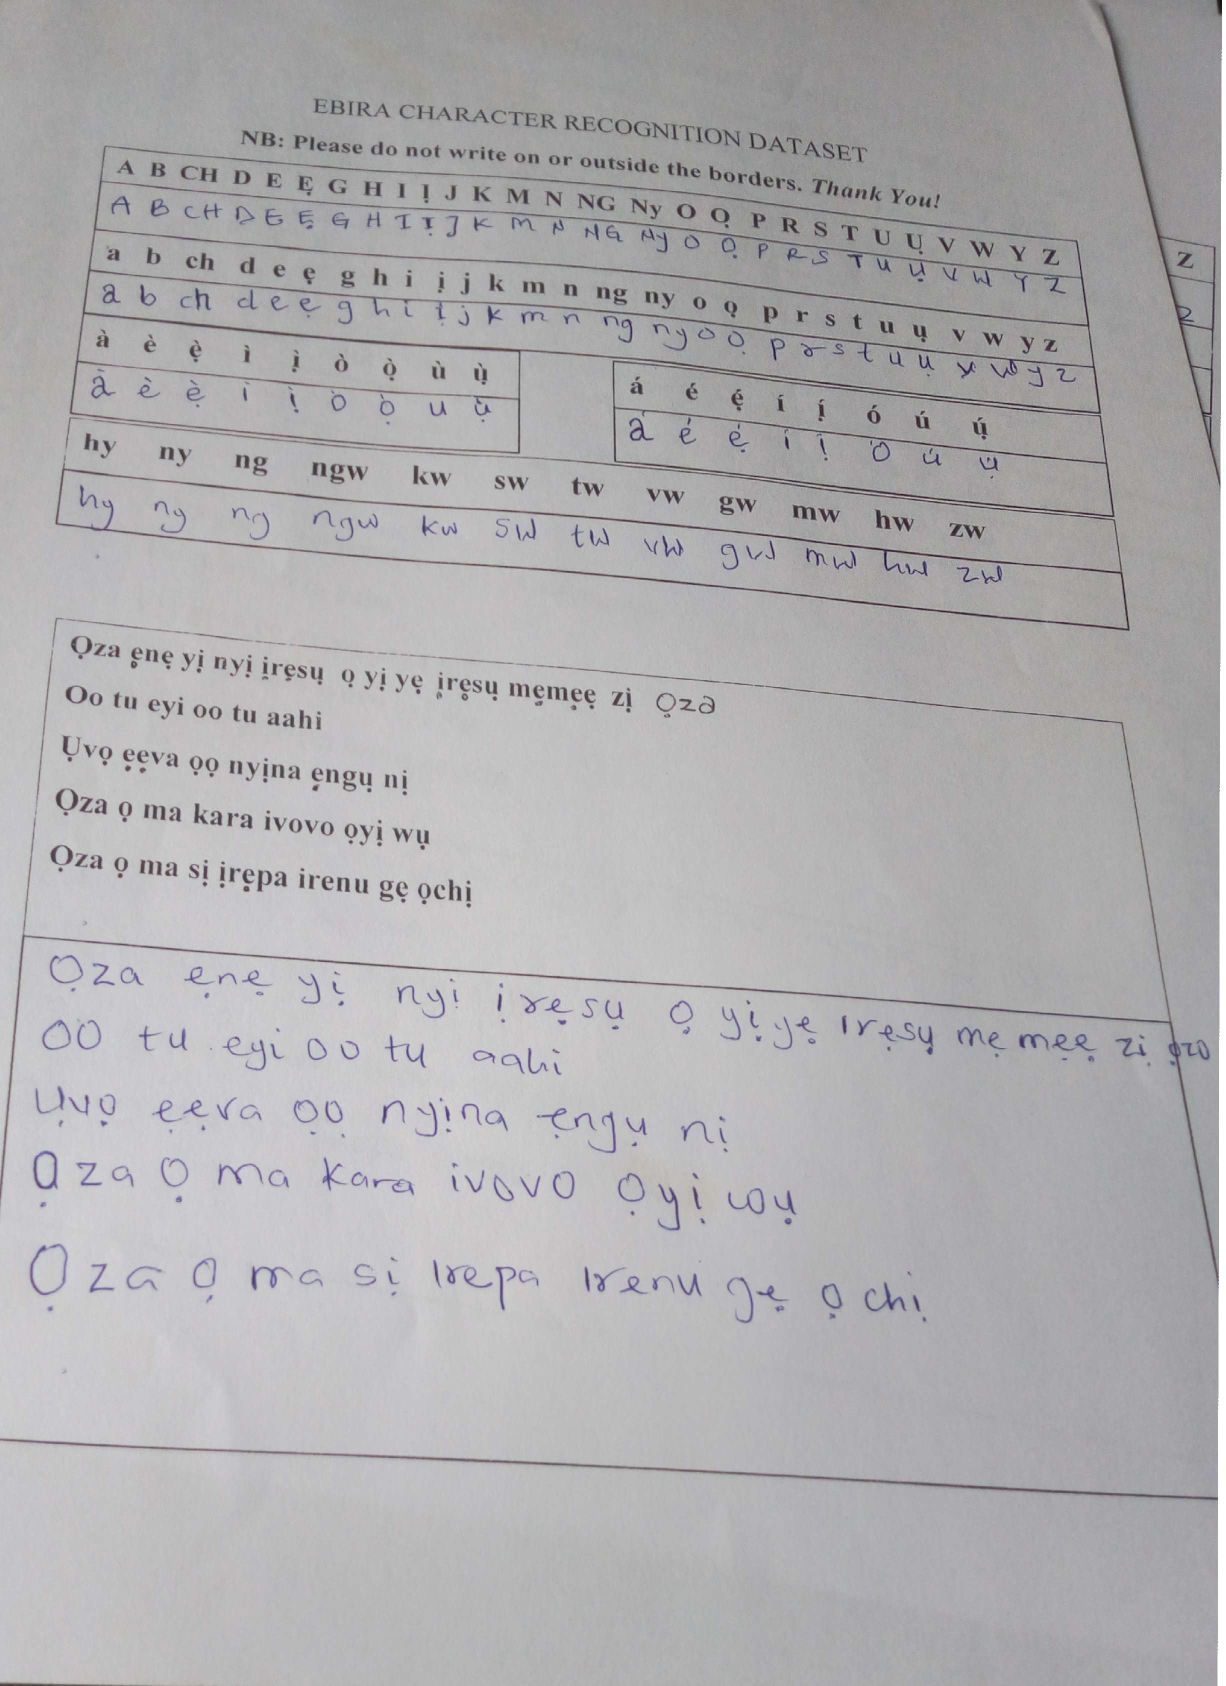 EBIRA CHARACTER RECOGNITION DATASET
NB: Please do not write on or outside the borders. Thank You!
A B CH D E Ẹ G H I Ị J K M N NG Ny O Ọ P R S T U Ụ V W Y Z
A B CH D E Ẹ G H I Ị J K M N NG Ny O Ọ P R S T U Ụ V W Y Z
a b ch d e ẹ g h i ị j k m n ng ny o ọ p r s t u ụ v w y z
a b ch d e ẹ g h i ị j k m n ng ny o ọ p r s t u ụ v w y z
à è ẹ̀ ì ị̀ ò ọ̀ ù ụ̀
à è ẹ̀ i ị ò ọ̀ u ụ̀
á é ẹ́ í ị́ ó ú ụ́
á é ẹ́ í ị ó ú ụ́
hy ny ng ngw kw sw tw vw gw mw hw zw
hy ny ng ngw kw sw tw vw gw mw hw zw
Ọza ẹnẹ yị nyị ịrẹsụ ọ yị yẹ ịrẹsụ mẹmẹẹ zị Ọza
Oo tu eyi oo tu aahi
Ụvọ ẹẹva ọọ nyịna ẹngụ nị
Ọza ọ ma kara ivovo ọyị wụ
Ọza ọ ma sị ịrẹpa irenu gẹ ọchị
Ọza ẹnẹ yị nyi ịrẹsụ ọ yị yẹ ırẹsụ mẹ mẹẹ zị ọzo
OO tu eyi oo tu aahi
Ụvọ ẹẹva ọọ nyịna ẹngụ nị
Ọza ọ ma kara ivovo ọyị wụ
Ọza ọ ma sị ırepa ırenu gẹ ọchị
Z
Z